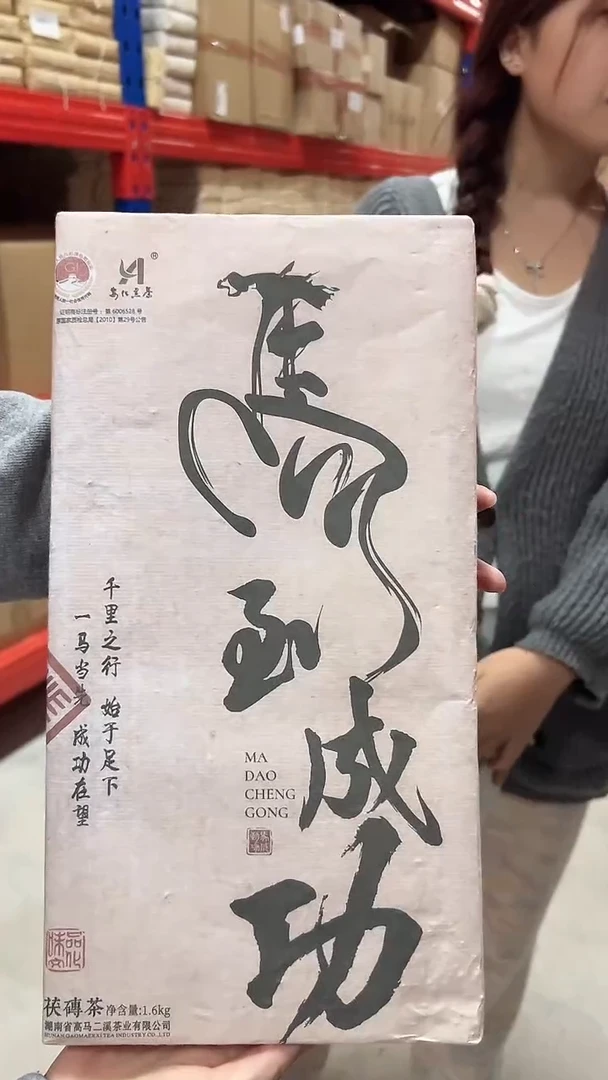 安化黑茶
®
证明商标注册号：第6006528号
国家质检总局【2010】第29号公告
馬到成功
千里之行 始于足下
一马当先 成功在望
MA
DAO
CHENG
GONG
茯磚茶 净含量:1.6kg
湖南省高马二溪茶业有限公司
HUNAN GAOMAERXI TEA INDUSTRY CO.,LTD